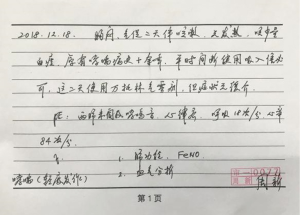 2018.12.18. 胸闷、气促二天伴咳嗽，无发热，咳少量
白痰，原有哮喘病史十余年，平时间断使用吸入激素
可，这二天使用万托林气雾剂，但症状无缓介
PE：两肺未闻及哮鸣音，心(-)，呼吸18次/分，心率
84次/分
1. 肺功能，FeNO
2. 血气分析
哮喘（轻度发作）
第1页